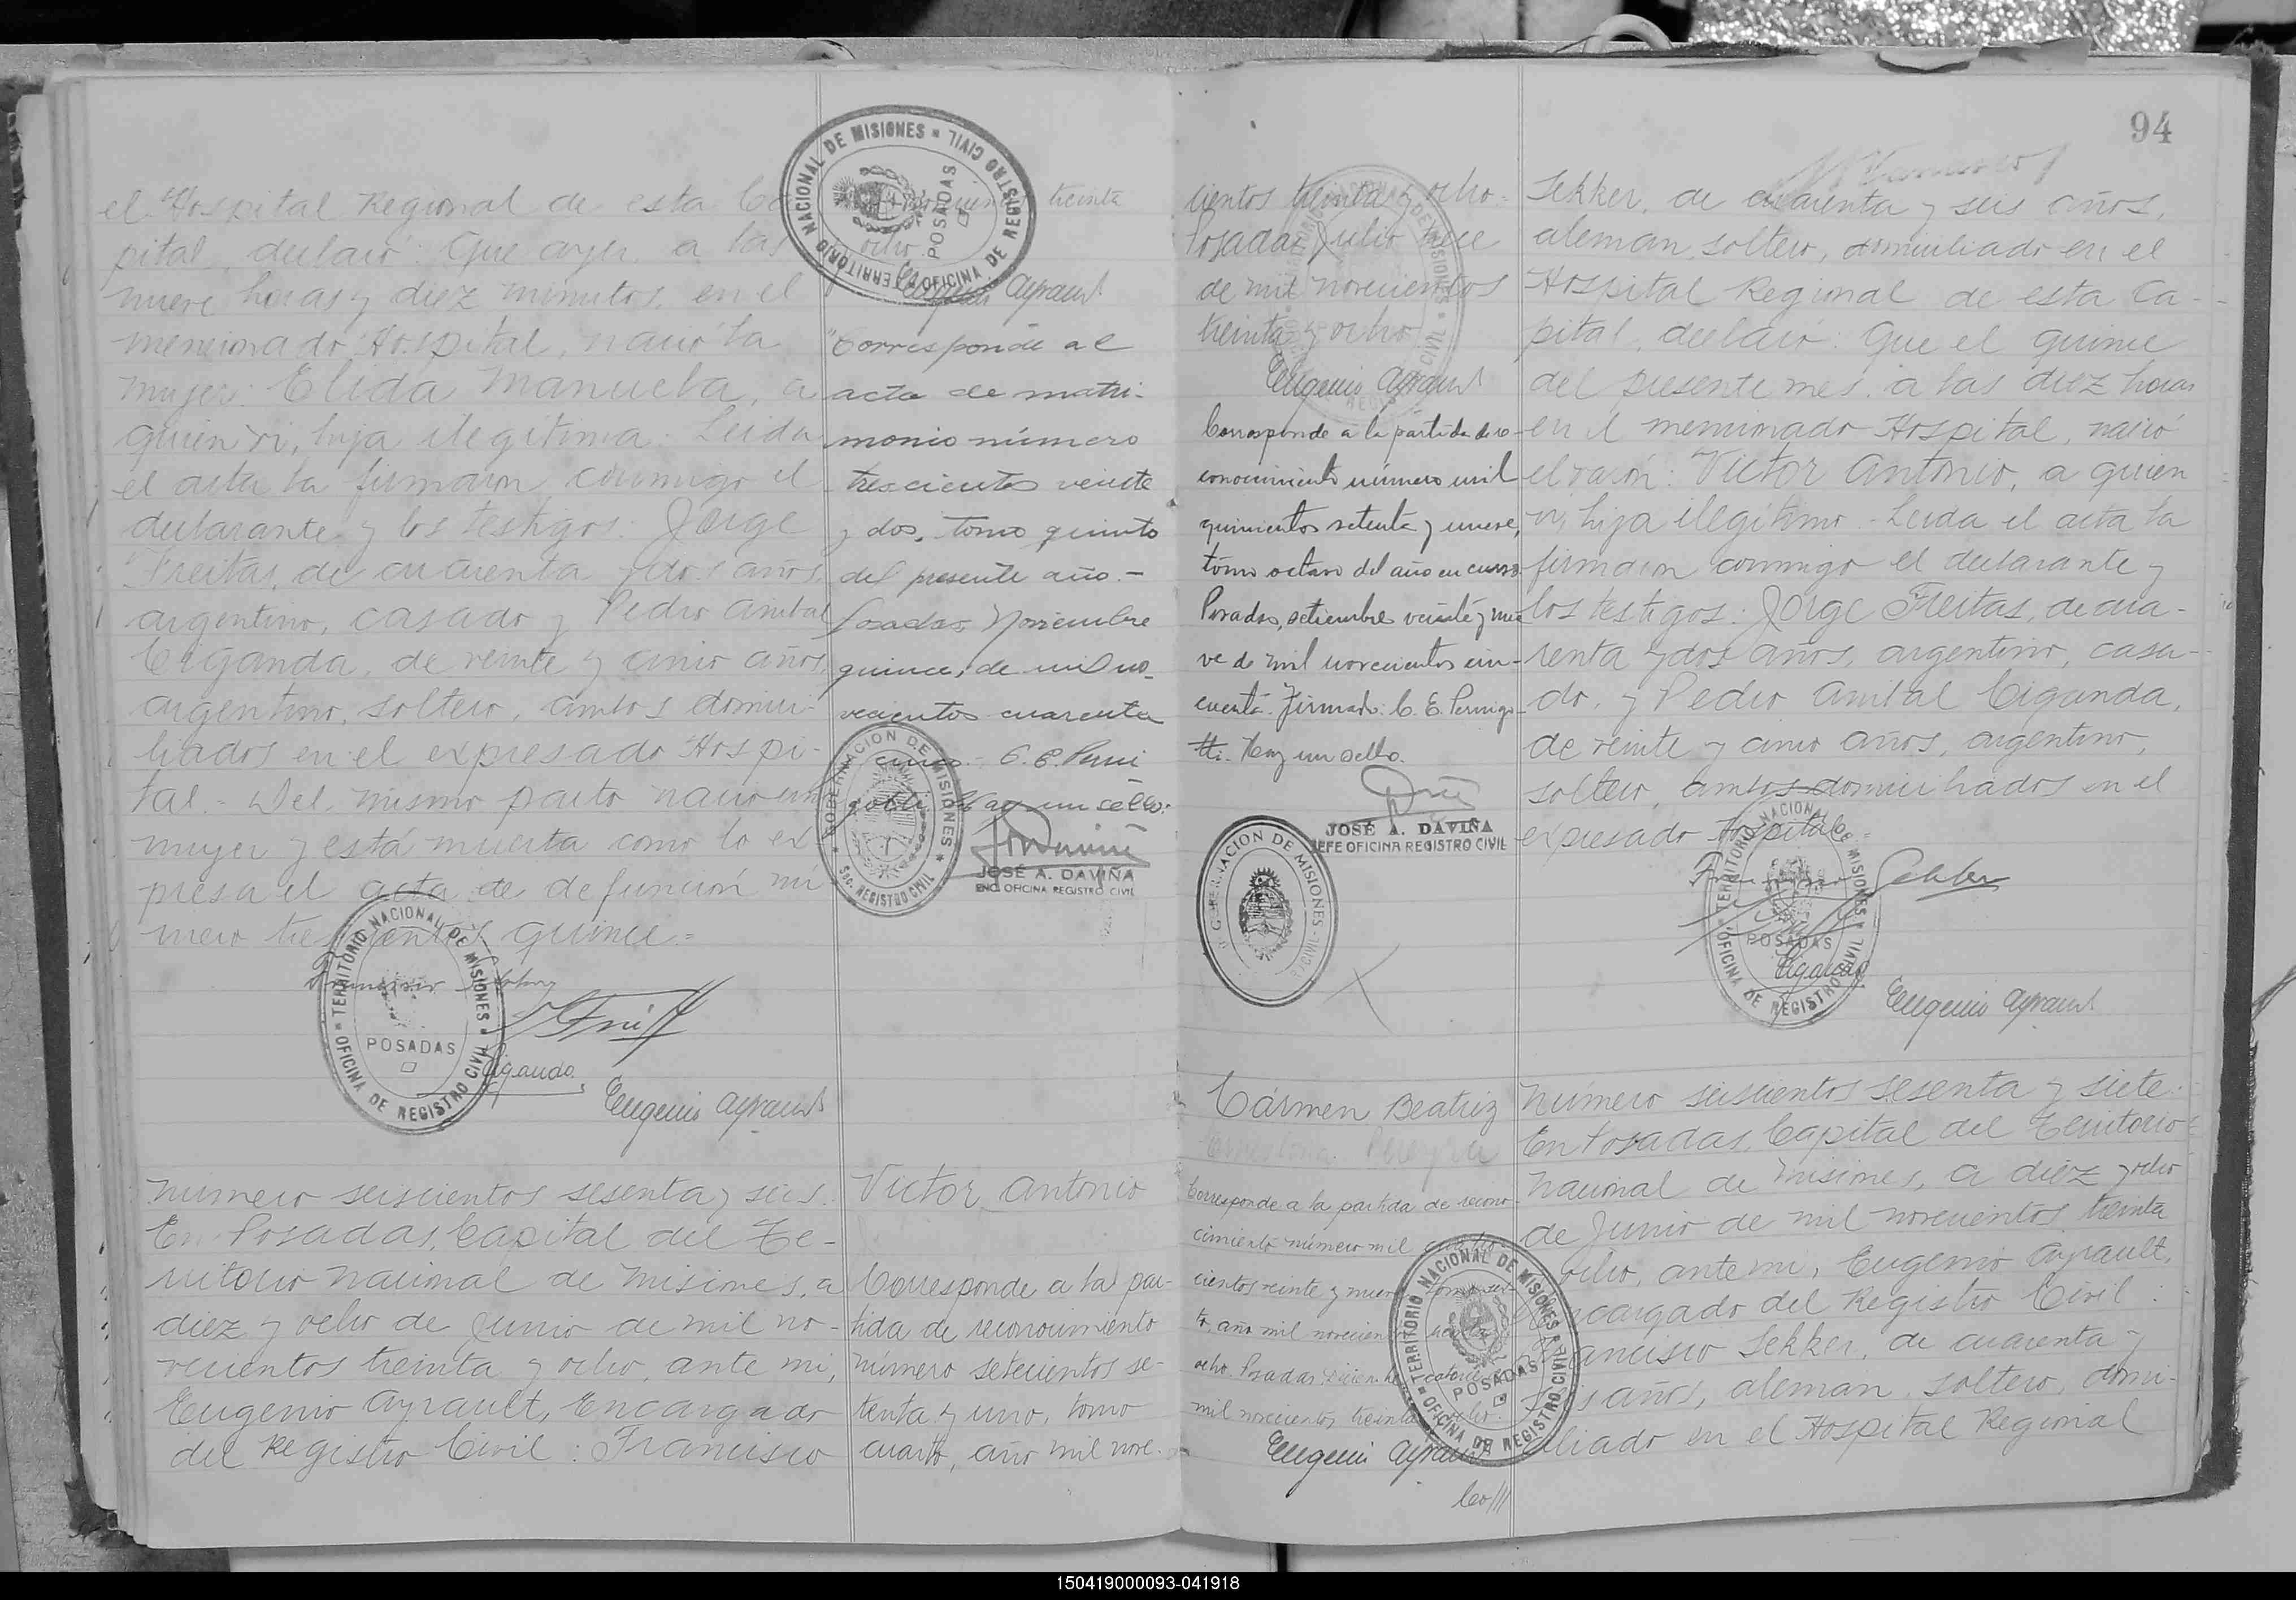 el Hospital Regional de esta Ca
pital, declaró: Que ayer, a las
nueve horas y diez minutos, en el
mencionado Hospital, nació la
mujer: Elida Manuela, a
quien vi, hija ilegítima. Leida
el acta la firmaron conmigo el
declarante y los testigos: Jorge
Freitas, de cuarenta y dos años,
argentino, casado y Pedro Anibal
Ciganda, de veinte y cinco años,
argentino, soltero, ambos domici-
liados en el expresado Hospi-
tal. Del mismo parto nació una
mujer y está muerta como lo ex
presa el acta de defunción nú
mero trescientos quince.=
Ciganda
Eugenio Ayrault
TERRITORIO NACIONAL DE MISIONES
OFICINA DE REGISTRO CIVIL
POSADAS
número seiscientos sesenta y seis.
En Posadas, Capital del Te-
rritorio Nacional de Misiones, a
diez y ocho de Junio de mil no-
vecientos treinta y ocho, ante mi,
Eugenio Ayrault, Encargado
del Registro Civil: Francisco
treinta
ocho
Eugenio Ayrault
TERRITORIO NACIONAL DE MISIONES
OFICINA DE REGISTRO CIVIL
POSADAS
"Corresponde al
acta de matri-
monio número
trescientos veinte
y dos, tomo quinto
del presente año.-
Posadas, Noviembre
quince, de mil no-
vecientos cuarenta
y cinco.- C. E. Perni
gotti. Hay un sello:
GOBERNACION DE MISIONES
SEC. REGISTRO CIVIL
JOSÉ A. DAVIÑA
ENC. OFICINA REGISTRO CIVIL
Victor Antonio
Corresponde a la par-
tida de reconocimiento
número setecientos se-
tenta y uno, tomo
cuarto, año mil nove-
94
cientos treinta y ocho=
Posadas, Julio trece
de mil novecientos
treinta y ocho
Eugenio Ayrault
Corresponde a la partida de re-
conocimiento número mil
quinientos setenta y nueve,
tomo octavo del año en curso.
Posadas, setiembre veinte y nue-
ve de mil novecientos cin-
cuenta. Firmado: C. E. Pernigo-
tti. Hay un sello.
JOSÉ A. DAVIÑA
JEFE OFICINA REGISTRO CIVIL
GOBERNACION DE MISIONES
Cármen Beatriz
Corresponde a la partida de recono-
cimiento número mil
cientos veinte y nueve
to, año mil novecientos
ocho. Posadas, catorce
mil novecientos treinta y ocho.
Eugenio Ayrault
Sekker, de cuarenta y seis años,
aleman, soltero, domiciliado en el
Hospital Regional de esta Ca-
pital, declaró: Que el quince
del presente mes, a las diez horas
en el mencionado Hospital, nació
el varón: Victor Antonio, a quien
vi, hijo ilegítimo.- Leida el acta la
firmaron conmigo el declarante y
los testigos: Jorge Freitas, de cua-
renta y dos años, argentino, casa-
do, y Pedro Anibal Ciganda,
de veinte y cinco años, argentino,
soltero, ambos domiciliados en el
expresado Hospital.=
TERRITORIO NACIONAL DE MISIONES
OFICINA DE REGISTRO CIVIL
POSADAS
Ciganda
Eugenio Ayrault
Número seiscientos sesenta y siete.
En Posadas, Capital del Territorio
Nacional de Misiones, a diez y ocho
de Junio de mil novecientos treinta
y ocho, ante mi, Eugenio Ayrault,
Encargado del Registro Civil:
Francisco Sekker, de cuarenta y
seis años, aleman, soltero, domi-
ciliado en el Hospital Regional
TERRITORIO NACIONAL DE MISIONES
OFICINA DE REGISTRO CIVIL
POSADAS
150419000093-041918